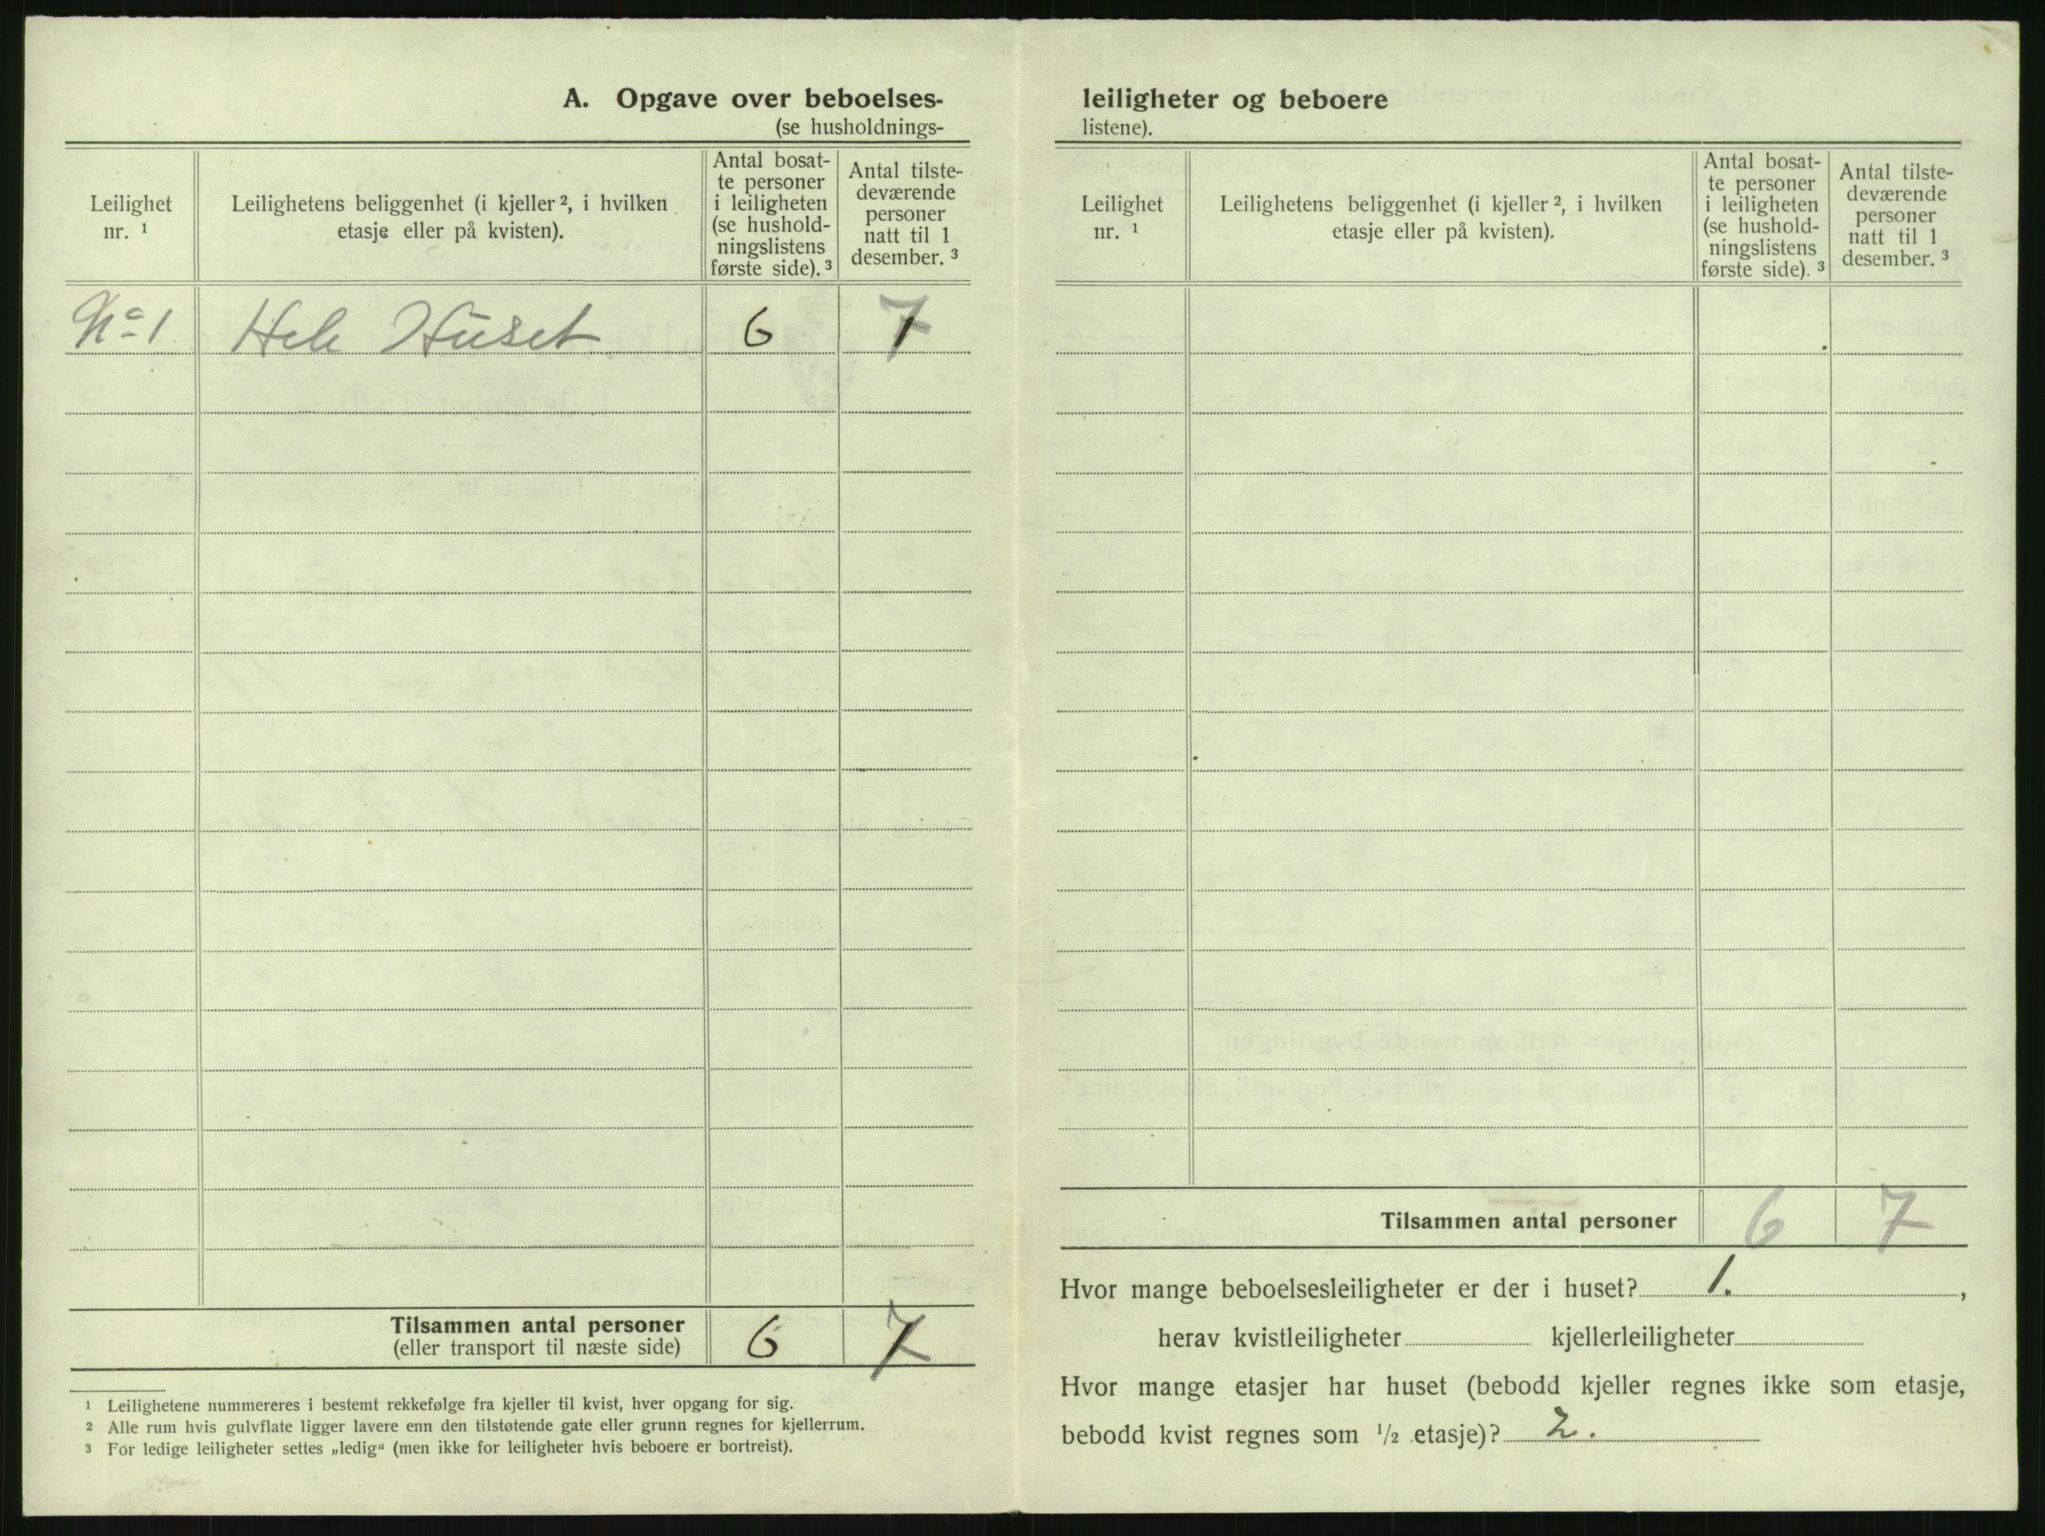 A. Opgave over beboelses-
(se husholdnings-
Leilighet
nr. ¹
Leilighetens beliggenhet (i kjeller ², i hvilken
etasje eller på kvisten).
Antal bosat-
te personer
i leiligheten
(se hushold-
ningslistens
første side). ³
Antal tilste-
deværende
personer
natt til 1
desember. ³
No 1 Hele Huset 6 7
Tilsammen antal personer 6 7
(eller transport til næste side)
¹ Leilighetene nummereres i bestemt rekkefølge fra kjeller til kvist, hver opgang for sig.
² Alle rum hvis gulvflate ligger lavere enn den tilstøtende gate eller grunn regnes for kjellerrum.
³ For ledige leiligheter settes „ledig“ (men ikke for leiligheter hvis beboere er bortreist).
leiligheter og beboere
listene).
Leilighet
nr. ¹
Leilighetens beliggenhet (i kjeller ², i hvilken
etasje eller på kvisten).
Antal bosat-
te personer
i leiligheten
(se hushold-
ningslistens
første side). ³
Antal tilste-
deværende
personer
natt til 1
desember. ³
Tilsammen antal personer 6 7
Hvor mange beboelsesleiligheter er der i huset? 1. ,
herav kvistleiligheter kjellerleiligheter
Hvor mange etasjer har huset (bebodd kjeller regnes ikke som etasje,
bebodd kvist regnes som ½ etasje)? 2.